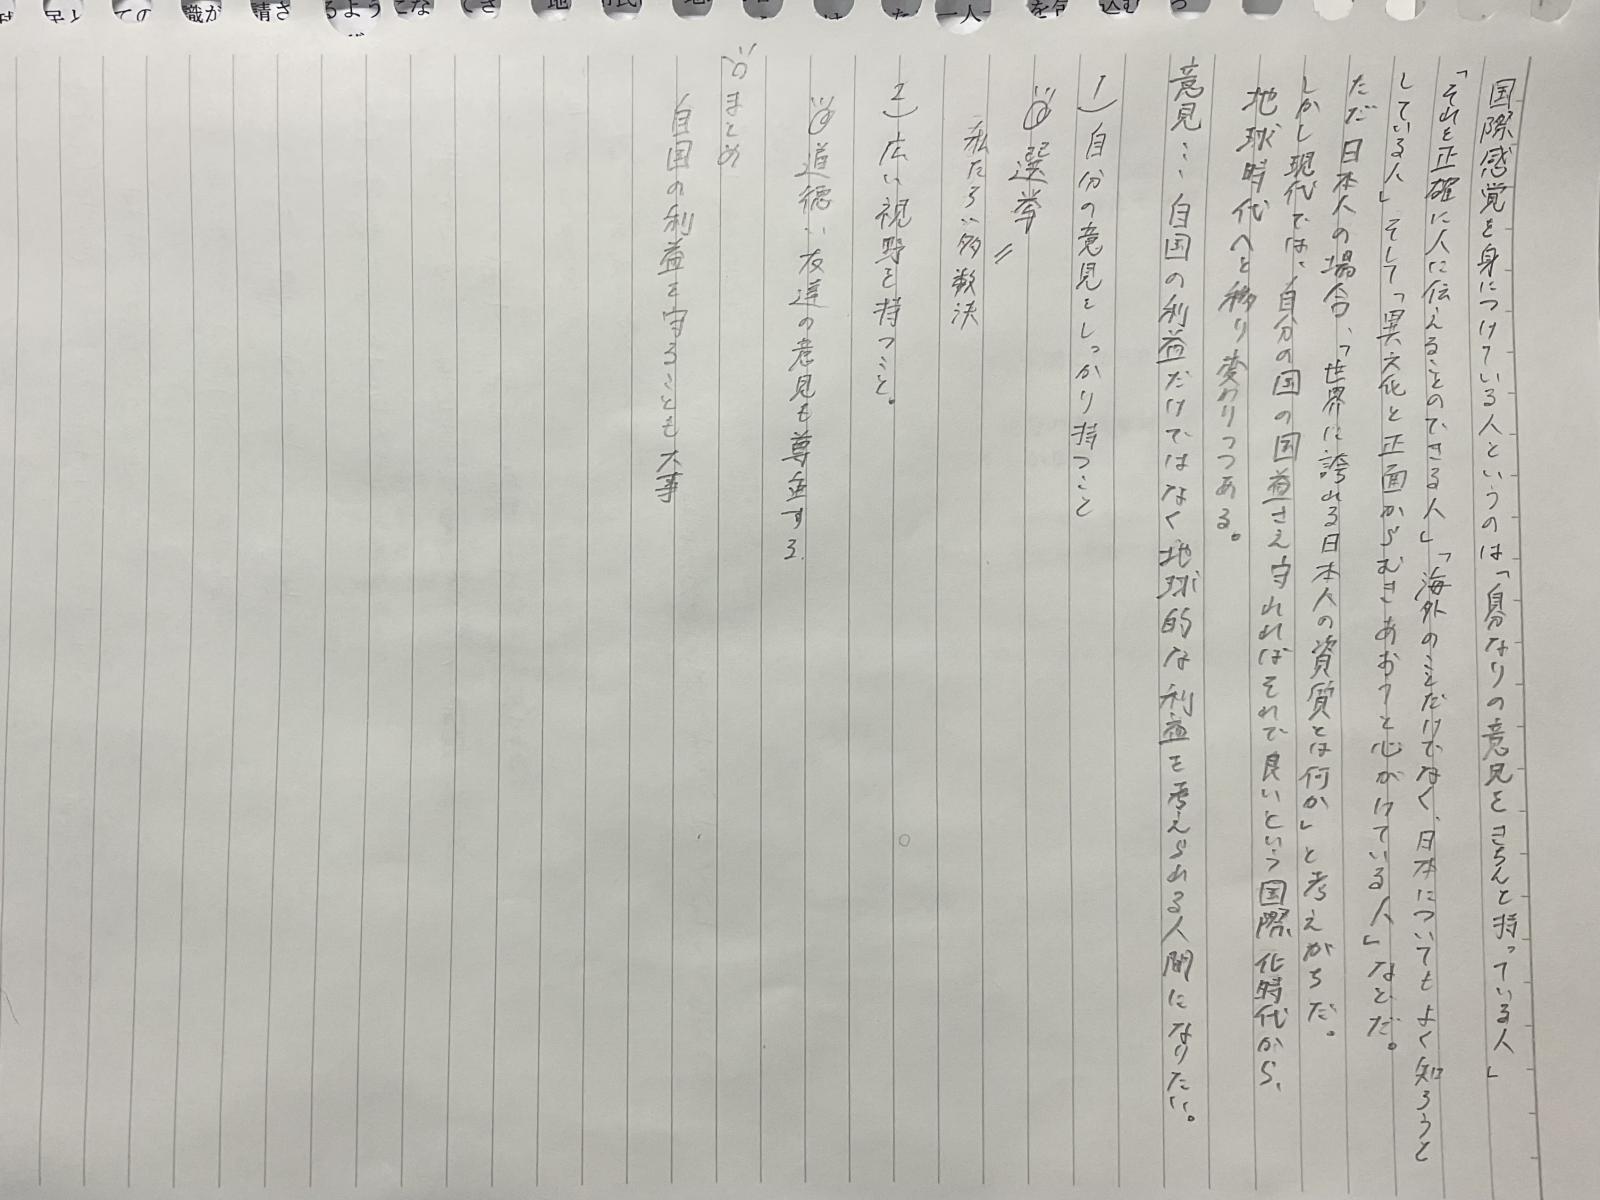 国際感覚を身につけている人というのは「自分なりの意見をきちんと持っている人」
「それを正確に人に伝えることのできる人」「海外のことだけでなく、日本についてもよく知ろうと
している人」そして「異文化と正面からむきあおうと心がけている人」などだ。
ただ日本人の場合、「世界に誇れる日本人の資質とは何か」と考えがちだ。
しかし現代では、自分の国の国益さえ守れればそれで良いという国際化時代から、
地球時代へと移り変わりつつある。
意見…自国の利益だけではなく地球的な利益を考えられる人間になりたい。
1) 自分の意見をしっかり持つこと
選挙
私たち 多数決
2) 広い視野を持つこと。
道徳 友達の意見も尊重する
まとめ
自国の利益を守ることも大事